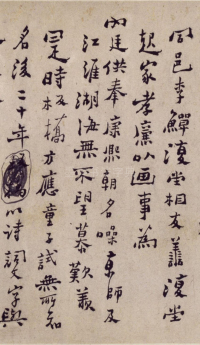 同邑李鱓復堂相友善復堂
起家孝廉以画事為
內廷供奉康熙朝名噪京師及
江淮湖海無不望慕歎羨
是時板橋方應童子試無所知
名後二十年以詩詞文字與